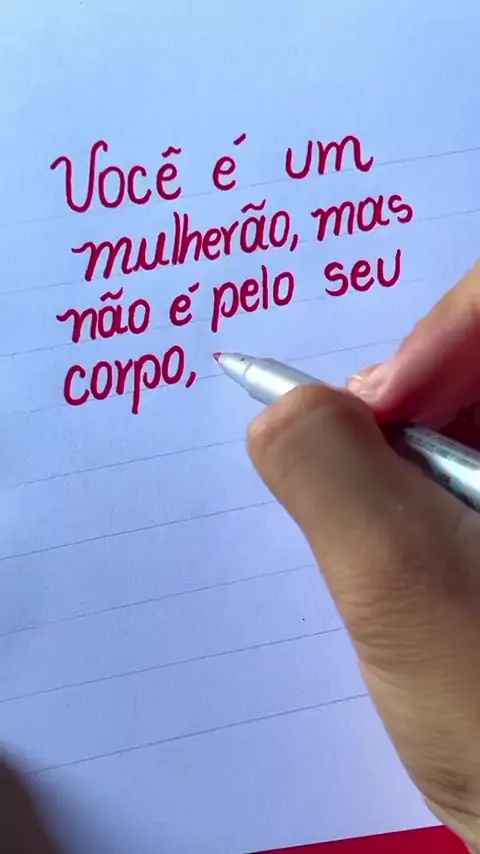 Você é um
mulherão, mas
não é pelo seu
corpo,